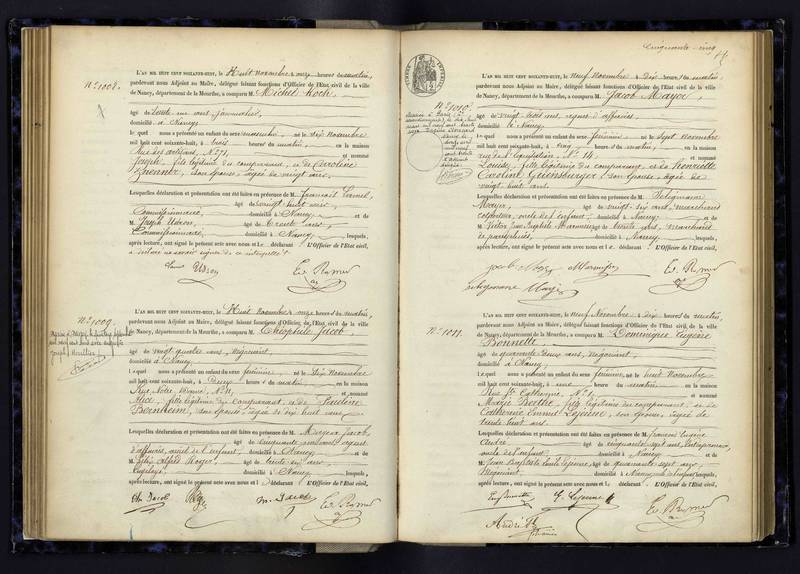 N° 1008.
L'AN MIL HUIT CENT SOIXANTE-HUIT, le Huit novembre à onze heures du matin,
pardevant nous Adjoint au Maire, délégué faisant fonctions d'Officier de l'Etat civil de la ville
de Nancy, département de la Meurthe, a comparu M. Michel Koch,
âgé de trente un ans, journalier,
domicilié à Nancy
lequel nous a présenté un enfant du sexe masculin, né le Six novembre
mil huit cent soixante-huit, à trois heures du matin, en la maison
Rue des Artisans, N° 71, et nommé
Joseph, fils légitime du comparant, et de Caroline
son épouse, âgée de vingt ans,
Lesquelles déclaration et présentation ont été faites en présence de M. François
âgé de vingt huit ans,
Commissionnaire, domicilié à Nancy, et de
M. Joseph âgé de trente ans,
Commissionnaire, domicilié à Nancy, lesquels,
après lecture, ont signé le présent acte avec nous et Le déclarant L'Officier de l'Etat civil,
a déclaré ne savoir signer de ce interpellé.
N° 1009.
L'AN MIL HUIT CENT SOIXANTE-HUIT, le Huit novembre à onze heures du matin,
pardevant nous Adjoint au Maire, délégué faisant fonctions d'Officier de l'Etat civil de la ville
de Nancy, département de la Meurthe, a comparu M. Théophile Jacob
âgé de vingt quatre ans, négociant,
domicilié à Nancy
lequel nous a présenté un enfant du sexe féminin, né le Six novembre
mil huit cent soixante-huit, à Deux heures du matin en la maison
Rue Notre Dame, N° 11, et nommé
Alice, fille légitime du comparant, et de Pauline
Bernheim, son épouse, âgée de dix huit ans,
Lesquelles déclaration et présentation ont été faites en présence de M. Mayer Jacob,
âgé de cinquante ans, agent
d'affaires, aïeul de l'enfant, domicilié à Nancy et de
M. Alfred Roger, âgé de trente six ans,
Employé, domicilié à Nancy, lesquels,
après lecture, ont signé le présent acte avec nous et Le déclarant L'Officier de l'Etat civil,
Th. Jacob
M. Jacob
Cinquante-cinq
N° 1010.
L'AN MIL HUIT CENT SOIXANTE-HUIT, le neuf Novembre à Dix heures du matin,
pardevant nous Adjoint au Maire, délégué faisant fonctions d'Officier de l'Etat civil de la ville
de Nancy, département de la Meurthe, a comparu M. Jacob Mayer,
âgé de vingt trois ans, agent d'affaires,
domicilié à Nancy,
lequel nous a présenté un enfant du sexe féminin, né le Sept novembre
mil huit cent soixante-huit, à cinq heures du matin, en la maison
rue de l'équitation N° 14, et nommé
Louise, fille légitime du comparant, et de Henriette
Caroline Guensburger, son épouse, âgée de
vingt huit ans.
Lesquelles déclaration et présentation ont été faites en présence de M. Seligmann
Mayer, âgé de vingt-six ans, marchand
colporteur, oncle de l'enfant, domicilié à Nancy, et de
M. Victor Jean Baptiste âgé de trente ans, marchand
de parapluies, domicilié à Nancy, lesquels,
après lecture, ont signé le présent acte avec nous et Le déclarant L'Officier de l'Etat civil,
N° 1011.
L'AN MIL HUIT CENT SOIXANTE-HUIT, le neuf Novembre à Dix heures du matin,
pardevant nous Adjoint au Maire, délégué faisant fonctions d'Officier de l'Etat civil de la ville
de Nancy, département de la Meurthe, a comparu M. Dominique Eugène
Bonnette
âgé de quarante deux ans, négociant,
domicilié à Nancy,
lequel nous a présenté un enfant du sexe féminin, né le huit Novembre
mil huit cent soixante-huit, à une heure du matin, en la maison
Rue Ste Catherine, N° 1, et nommé
Marie Berthe, fille légitime du comparant, et de
Catherine Emma Lejeune, son épouse, âgée de
trente huit ans.
Lesquelles déclaration et présentation ont été faites en présence de M. François Eugène
André âgé de cinquante sept ans, entrepreneur,
oncle de l'enfant, domicilié à Nancy et de
M. Jean Baptiste Emile Lejeune, âgé de quarante sept ans,
négociant, domicilié à lesquels,
après lecture, ont signé le présent acte avec nous et Le déclarant L'Officier de l'Etat civil,
E. Lejeune
André